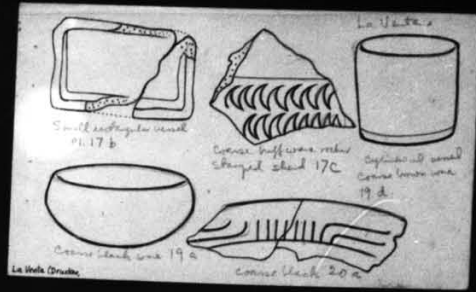 La Venta.
Small rectangular vessel
Pl. 17 b
Coarse buff ware rocker
stamped sherd 17C
Cylindrical vessel
coarse brown ware
19 d
Coarse black ware 19 a
coarse black 20 a
La Venta (Drucker)